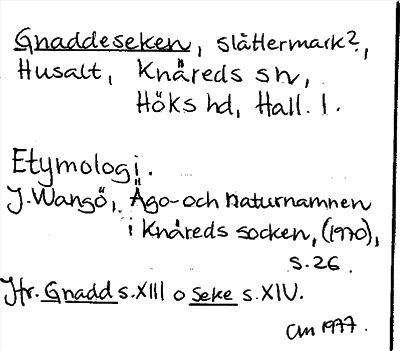 Gnaddeseken, slåttermark?,
Husalt, Knäreds sn,
Höks hd, Hall. l.
Etymologi.
J. Wangö, Ägo- och naturnamnen
i Knäreds socken, (1970),
s. 26.
Jfr. Gnadd s. XIII o Seke s. XIV.
1977.